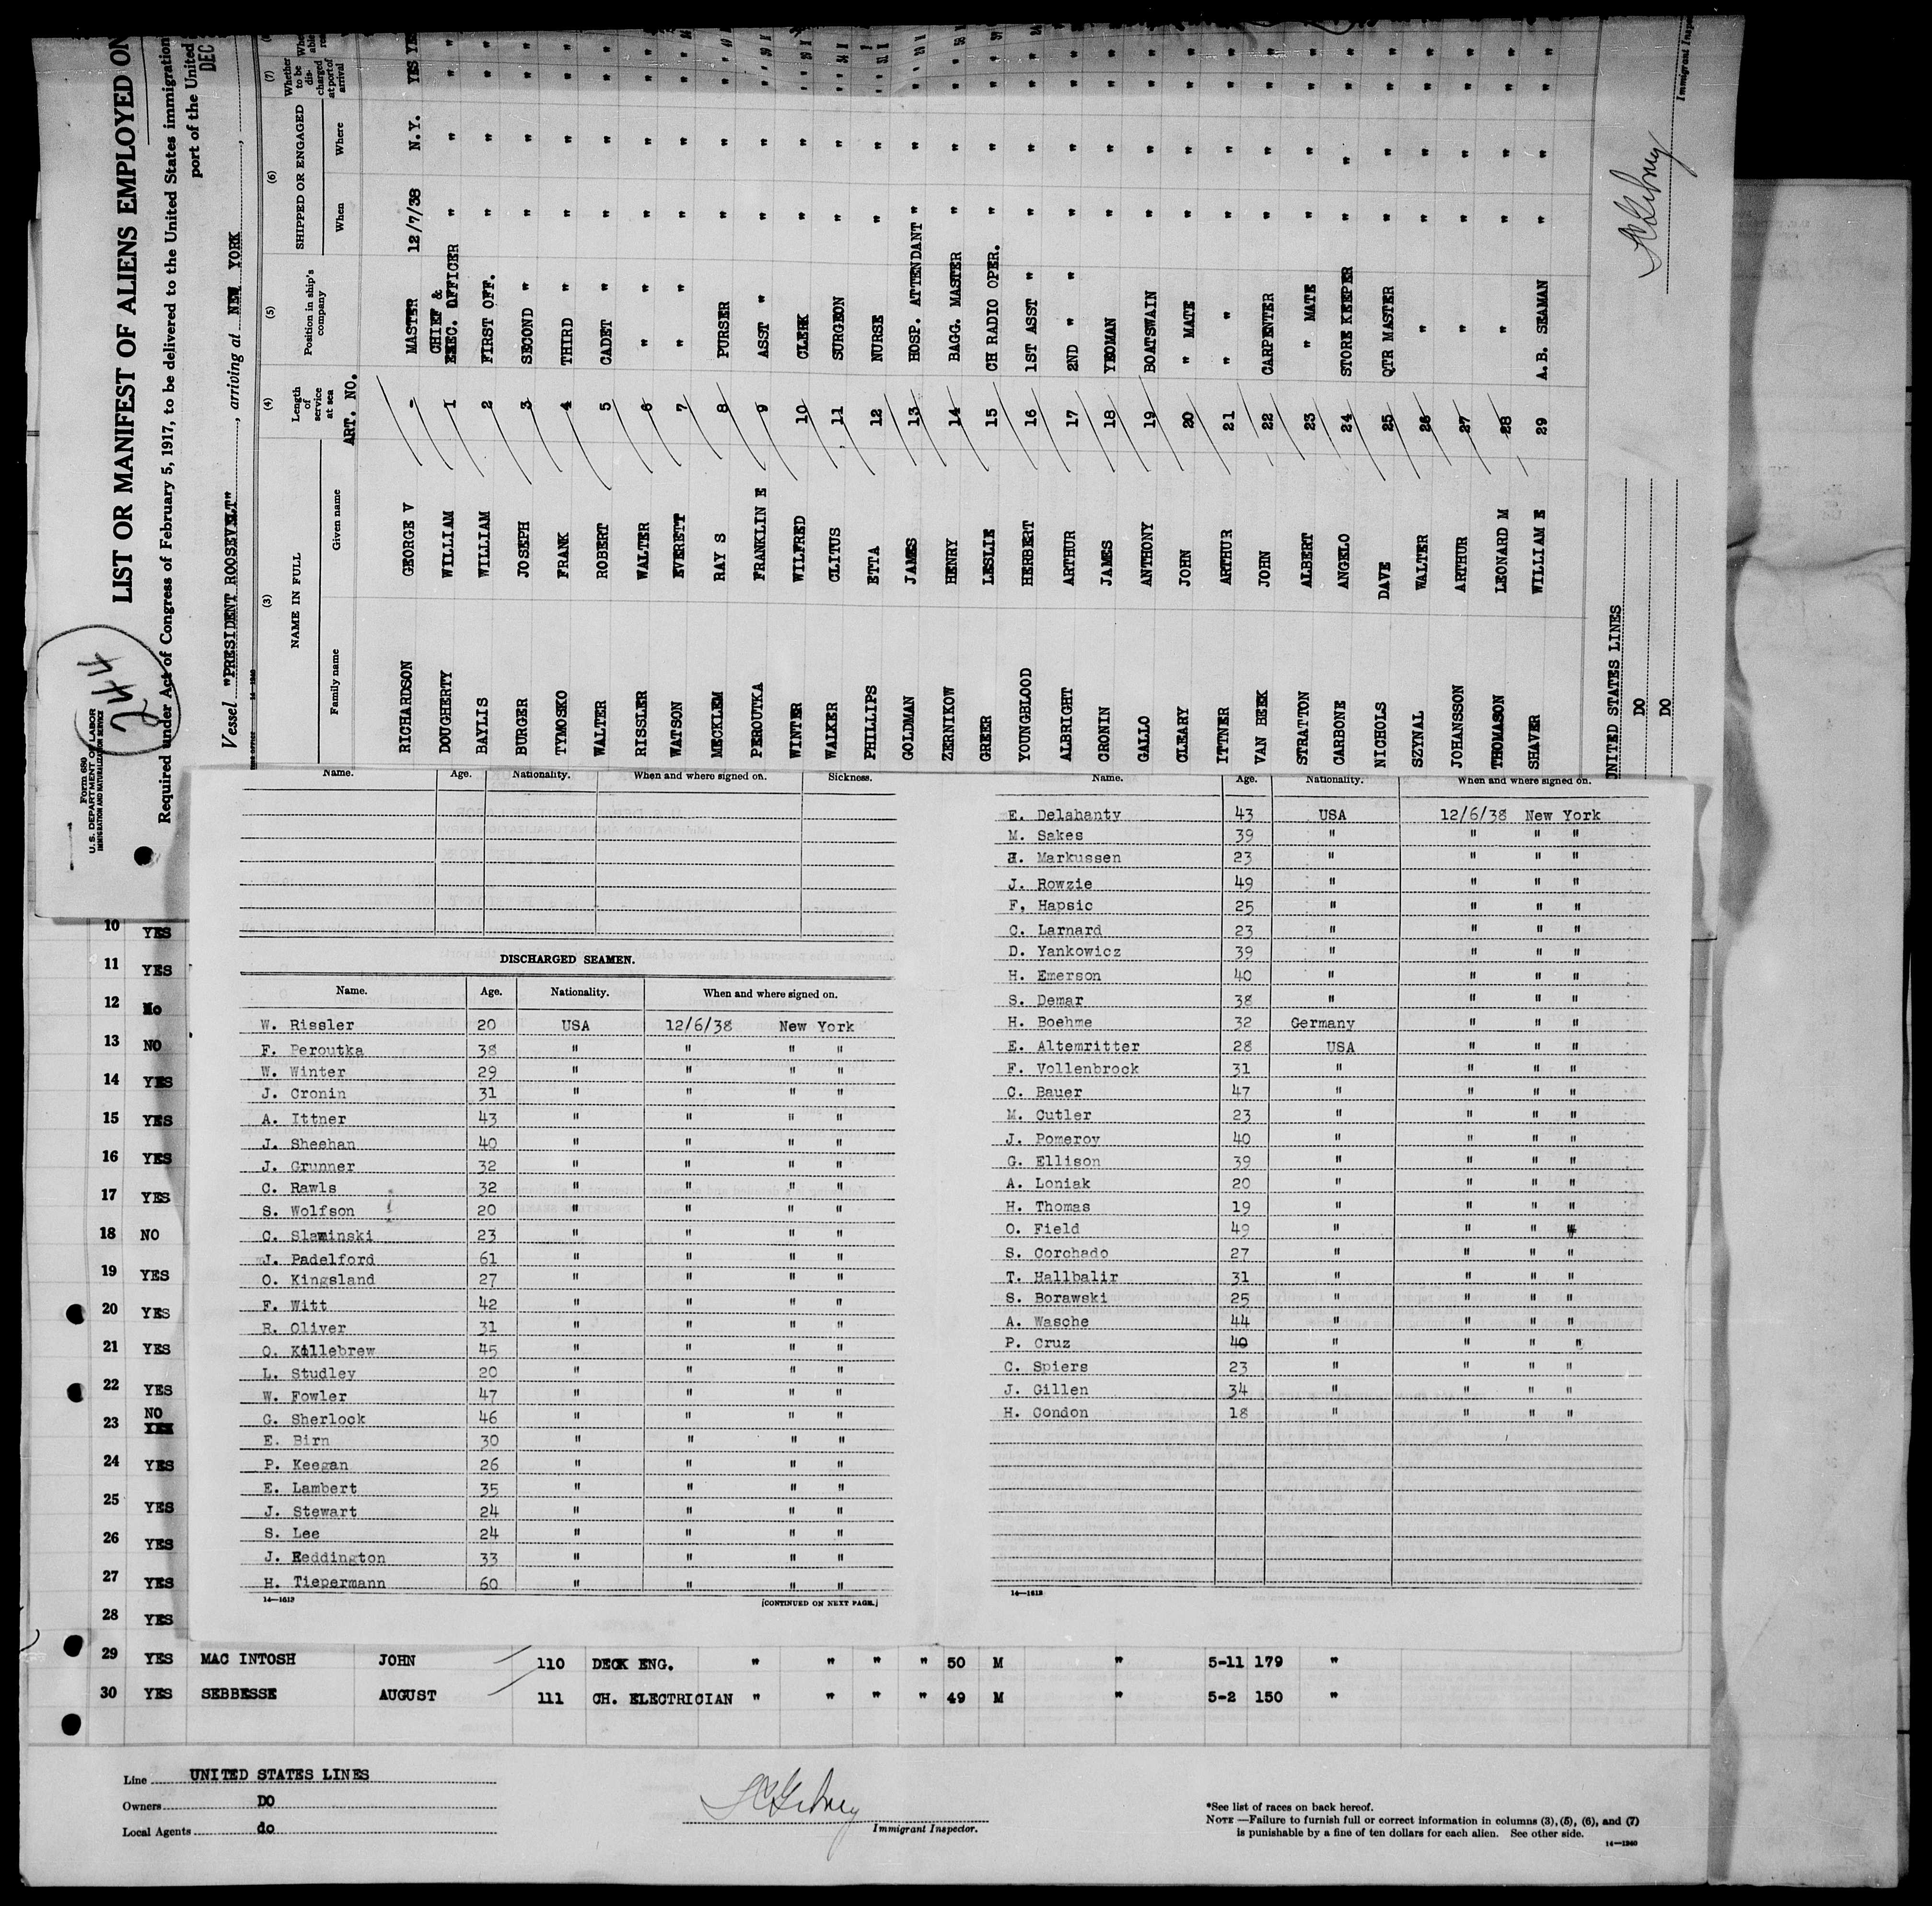 Form 689
U. S. DEPARTMENT OF LABOR
IMMIGRATION AND NATURALIZATION SERVICE
244
LIST OR MANIFEST OF ALIENS EMPLOYED ON
Required under Act of Congress of February 5, 1917, to be delivered to the United States immigration
port of the United
DEC
Vessel "PRESIDENT ROOSEVELT", arriving at NEW YORK,
(3) (4) (5) (6) (7)
NAME IN FULL Length of service at sea Position in ship's company SHIPPED OR ENGAGED Whether to be discharged at port of arrival
Family name Given name When Where
ART. NO.
RICHARDSON GEORGE V - MASTER 12/7/38 N.Y. YES
DOUGHERTY WILLIAM 1 CHIEF & EXEC. OFFICER " " "
BAYLIS WILLIAM 2 FIRST OFF. " " "
BURGER JOSEPH 3 SECOND " " " "
TYMOSKO FRANK 4 THIRD " " " "
WALTER ROBERT 5 CADET " " " "
RISSLER WALTER 6 " " " "
WATSON EVERETT 7 " " " "
MECKLEM RAY S 8 PURSER " " "
PEROUTKA FRANKLIN E 9 ASST " " " "
WINTER WILFRED 10 CLERK " " "
WALKER CLITUS 11 SURGEON " " "
PHILLIPS ETTA 12 NURSE " " "
GOLDMAN JAMES 13 HOSP. ATTENDANT " " "
ZERNIKOW HENRY 14 BAGG. MASTER " " "
GREER LESLIE 15 CH RADIO OPER. " " "
YOUNGBLOOD HERBERT 16 1ST ASST " " " "
ALBRIGHT ARTHUR 17 2ND " " " " "
CRONIN JAMES 18 YEOMAN " " "
GALLO ANTHONY 19 BOATSWAIN " " "
CLEARY JOHN 20 " MATE " " "
ITTNER ARTHUR 21 " " " " "
VAN BEEK JOHN 22 CARPENTER " " "
STRATTON ALBERT 23 " MATE " " "
CARBONE ANGELO 24 STORE KEEPER " " "
NICHOLS DAVE 25 QTR MASTER " " "
SZYNAL WALTER 26 " " " "
JOHANSSON ARTHUR 27 " " " "
THOMASON LEONARD M 28 " " " "
SHAVER WILLIAM E 29 A.B. SEAMAN " " "
UNITED STATES LINES
DO
DO
Immigrant Insp
Name. Age. Nationality. When and where signed on. Sickness.
DISCHARGED SEAMEN.
Name. Age. Nationality. When and where signed on.
W. Rissler 20 USA 12/6/38 New York
F. Peroutka 38 " " " "
W. Winter 29 " " " "
J. Cronin 31 " " " "
A. Ittner 43 " " " "
J. Sheehan 40 " " " "
J. Grunner 32 " " " "
C. Rawls 32 " " " "
S. Wolfson 20 " " " "
C. Slaminski 23 " " " "
J. Padelford 61 " " " "
O. Kingsland 27 " " " "
F. Witt 42 " " " "
R. Oliver 31 " " " "
O. Killebrew 45 " " " "
L. Studley 20 " " " "
W. Fowler 47 " " " "
G. Sherlock 46 " " " "
E. Birn 30 " " " "
P. Keegan 26 " " " "
E. Lambert 35 " " " "
J. Stewart 24 " " " "
S. Lee 24 " " " "
J. Reddington 33 " " " "
H. Tiepermann 60 " " " "
14—1613 [CONTINUED ON NEXT PAGE.]
Name. Age. Nationality. When and where signed on.
E. Delahanty 43 USA 12/6/38 New York
M. Sakes 39 " " " "
H. Markussen 23 " " " "
J. Rowzie 49 " " " "
F, Hapsic 25 " " " "
C. Larnard 23 " " " "
D. Yankowicz 39 " " " "
H. Emerson 40 " " " "
S. Demar 38 " " " "
H. Boehme 32 Germany " " "
E. Altemritter 28 USA " " "
F. Vollenbrock 31 " " " "
C. Bauer 47 " " " "
M. Cutler 23 " " " "
J. Pomeroy 40 " " " "
G. Ellison 39 " " " "
A. Loniak 20 " " " "
H. Thomas 19 " " " "
O. Field 49 " " " "
S. Corchado 27 " " " "
T. Hallbalir 31 " " " "
S. Borawski 25 " " " "
A. Wasche 44 " " " "
P. Cruz 40 " " " "
C. Spiers 23 " " " "
J. Gillen 34 " " " "
H. Condon 18 " " " "
14—1613
10 YES
11 YES
12 No
13 NO
14 YES
15 YES
16 YES
17 YES
18 NO
19 YES
20 YES
21 YES
22 YES
23 NO
24 YES
25 YES
26 YES
27 YES
28 YES
29 YES MAC INTOSH JOHN 110 DECK ENG. " " " " 50 M " 5-11 179 "
30 YES SEBBESSE AUGUST 111 CH. ELECTRICIAN " " " " 49 M " 5-2 150 "
Line UNITED STATES LINES
Owners DO
Local Agents do
Immigrant Inspector.
*See list of races on back hereof.
NOTE—Failure to furnish full or correct information in columns (3), (5), (6), and (7)
is punishable by a fine of ten dollars for each alien. See other side.
14—1240